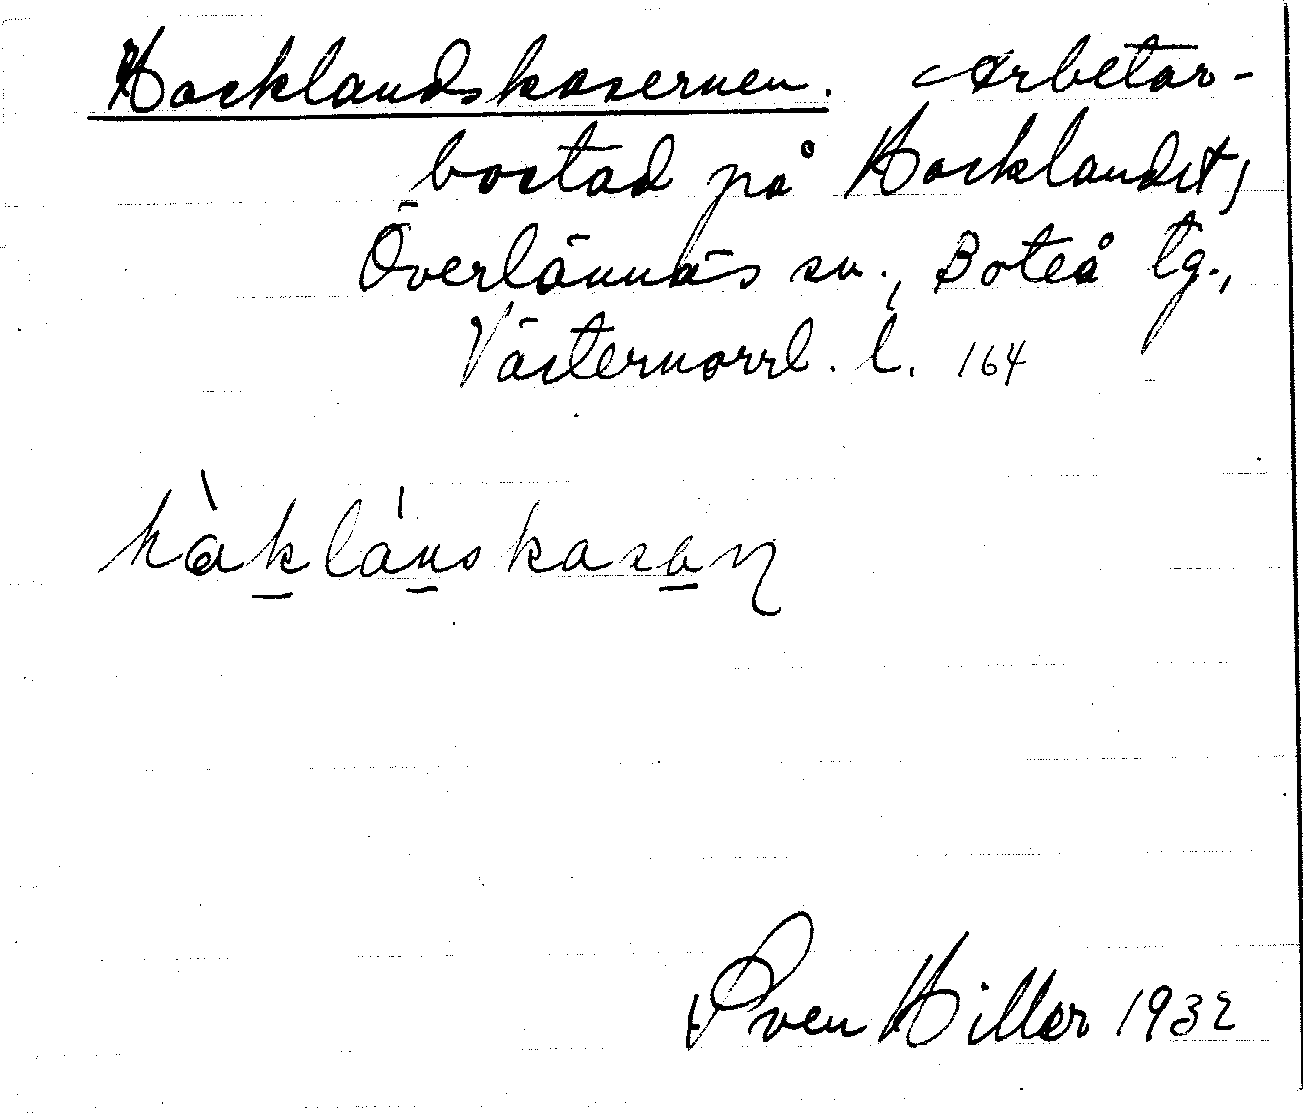 Hocklandskasernen. Arbetar-
bostad på Hocklandet,
Överlännäs sn., Boteå tg.,
Västernorrl. l. 164
Sven Hiller 1932